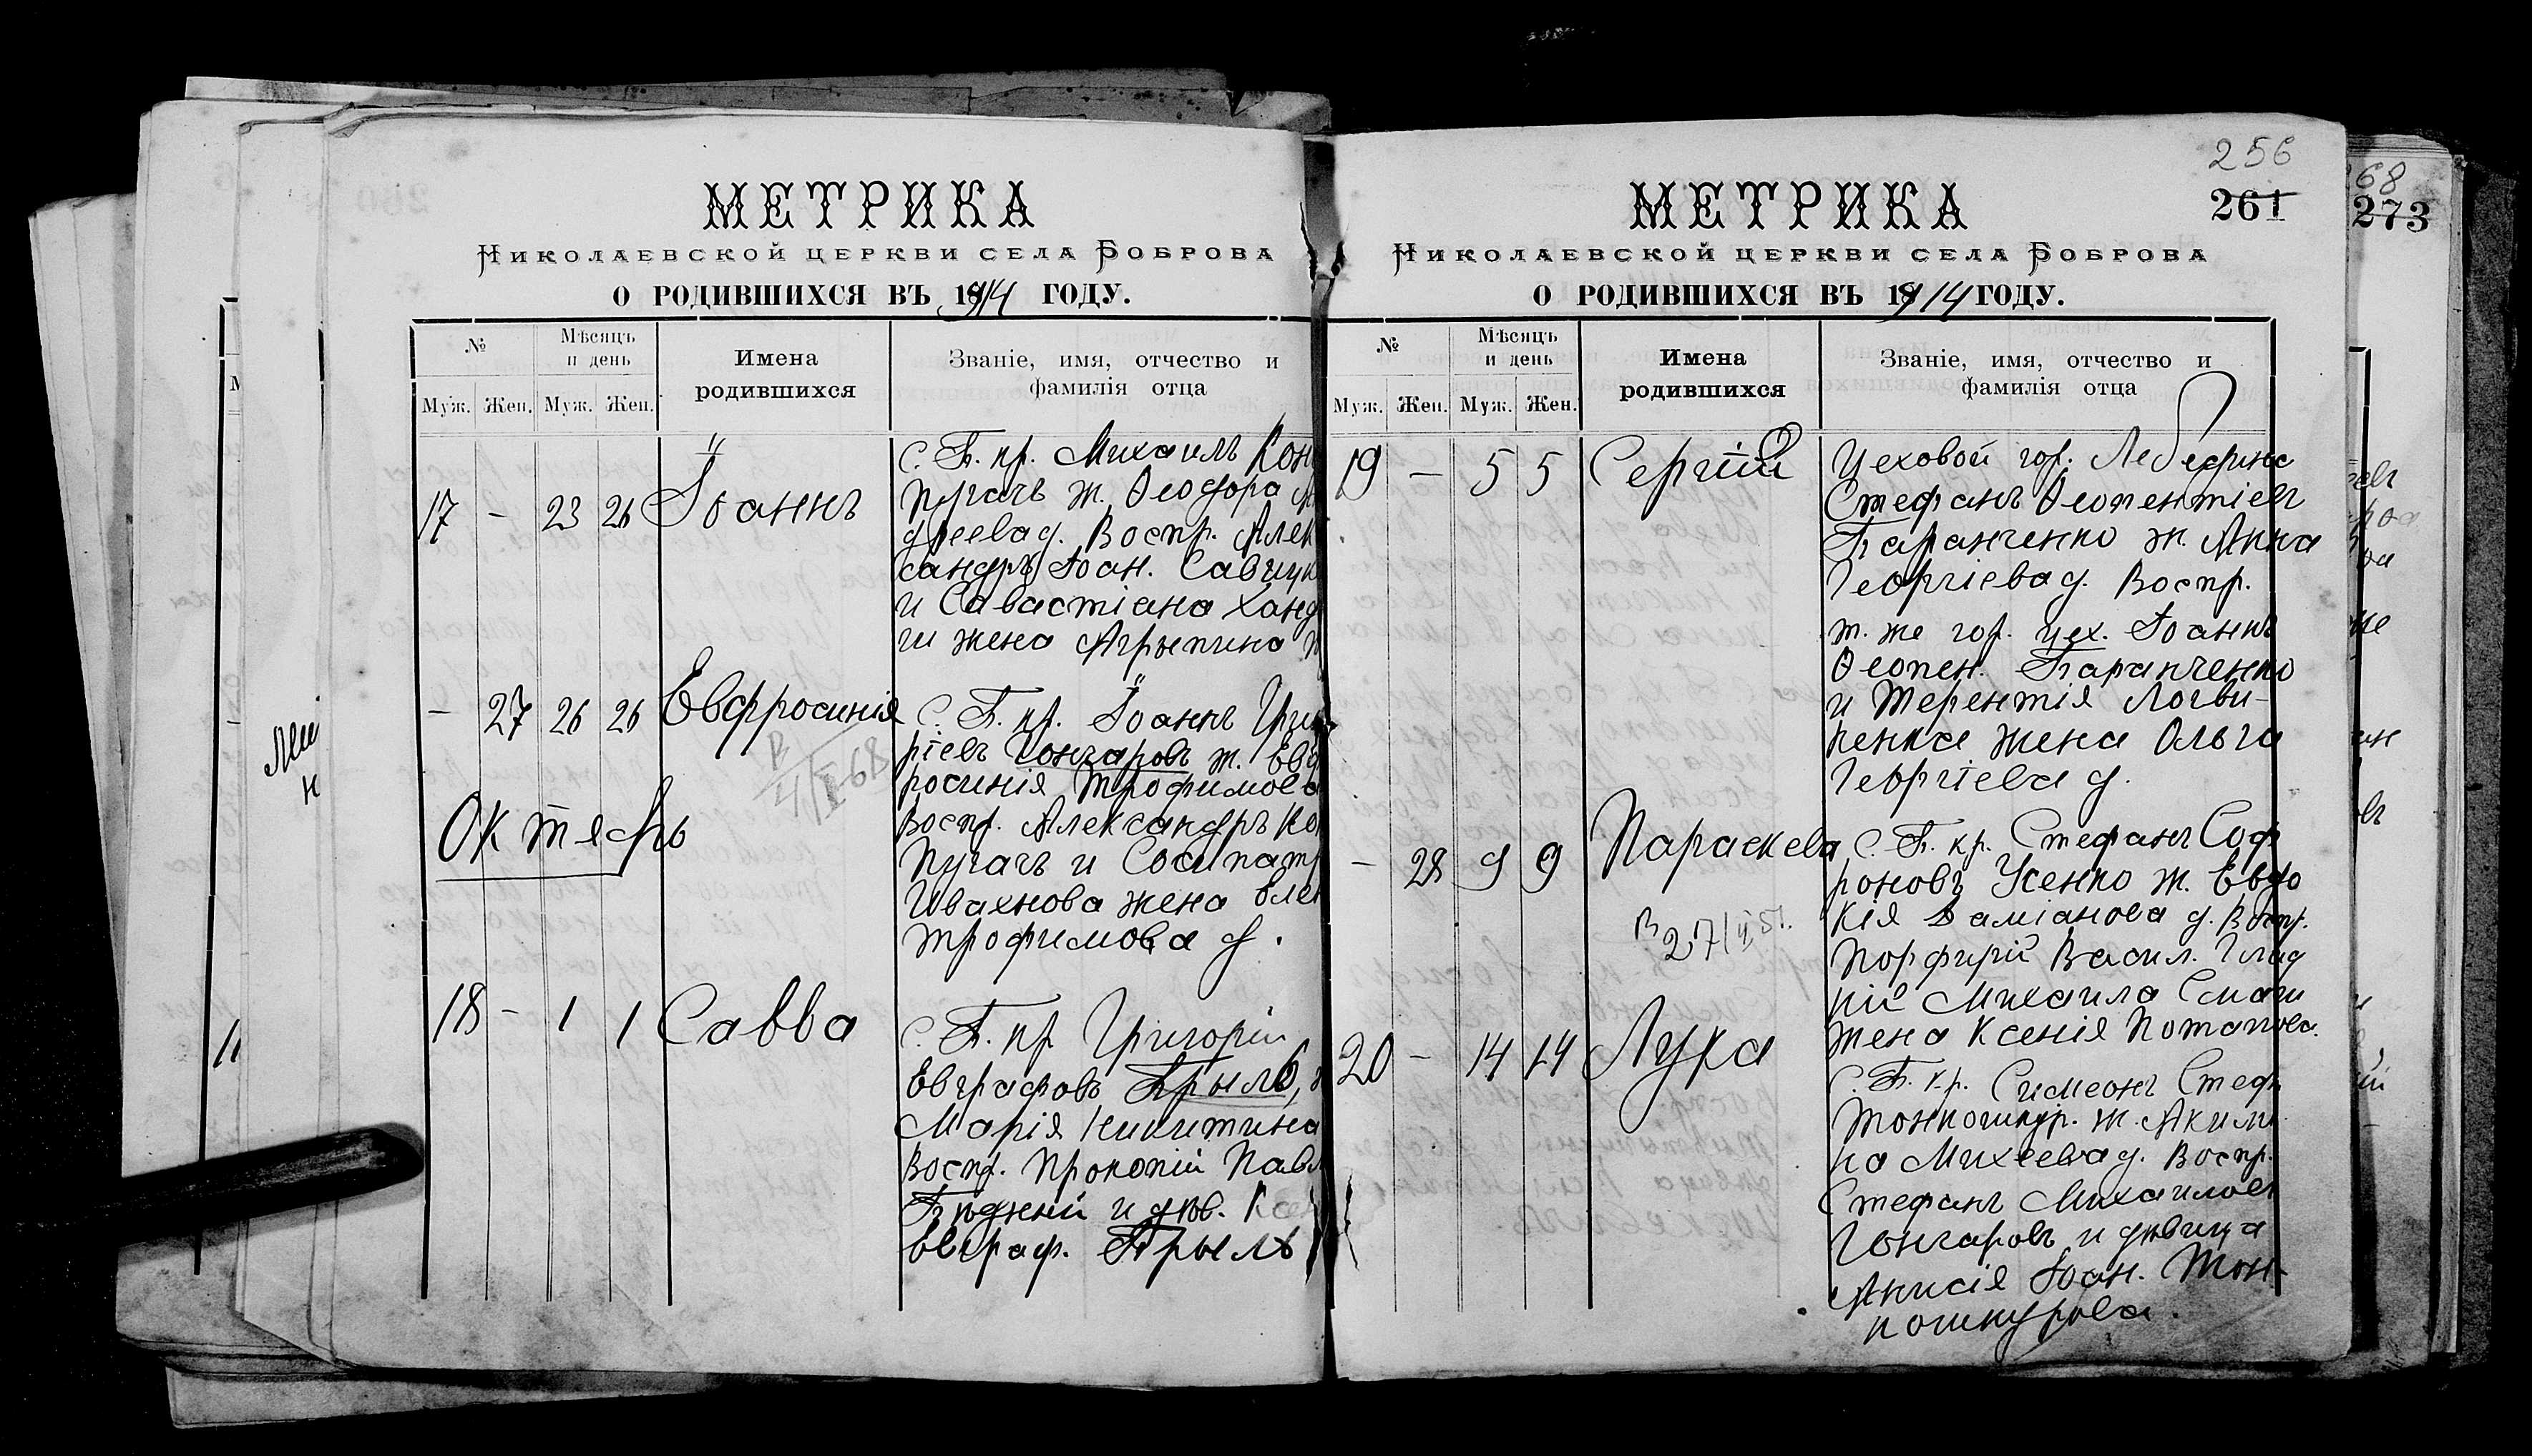 МЕТРИКА
НИКОЛАЕВСКОЙ ЦЕРКВИ СЕЛА БОБРОВА
О РОДИВШИХСЯ ВЪ 1914 ГОДУ.
№
Мѣсяцъ и день
Имена родившихся
Званіе, имя, отчество и фамилія отца
Муж. Жен. Муж. Жен.
17 - 23 26 Іоаннъ
с. Б. кр. Михаилъ Кон
Пугачъ ж. Ѳеодора
дреева д. Воспр. Алек
сандръ Іоан. Савчук
и Савастіана Ханд
ги жена Агрыпина
- 27 26 26 Евфросинія
с. Б. кр. Іоаннъ Григ
ріевъ Гончаровъ ж. Евф
росинія Трофимова
Воспр. Александръ Ко
Пугачъ и Сосипатр
Ивахнова жена Елен
Трофимова д.
В 4/II-68
Октябрь
18 - 1 1 Савва
с. Б. кр. Григорій
Евграфовъ Брыль,
Марія Никитина
Воспр. Прокопій Павл
Бѣдный и дѣв.
Евграф. Брыль
МЕТРИКА
256
261
НИКОЛАЕВСКОЙ ЦЕРКВИ СЕЛА БОБРОВА
О РОДИВШИХСЯ ВЪ 1914 ГОДУ.
№
Мѣсяцъ и день
Имена родившихся
Званіе, имя, отчество и фамилія отца
Муж. Жен. Муж. Жен.
19 - 5 5 Сергій
Цеховой гор. Лебедина
Стефанъ Ѳеопентіевъ
Баранченко ж. Анна
Георгіева д. Воспр.
т. же гор. цех. Іоаннъ
Ѳеопен. Баранченко
и Терентія Логви-
ненка жена Ольга
Георгіева д.
- 28 9 9 Параскева
с. Б. кр. Стефанъ Соф
роновъ Усенко ж. Евдо
кія Даміанова д. Воспр.
Порфирій Васил. Глад
кій Михаила
жена Ксенія Потапова
В 27
20 - 14 14 Лука
с. Б. кр. Симеонъ Стеф
Тонкошкур. ж. Акили
на Михеева д. Воспр.
Стефанъ Михаиловъ
Гончаровъ и дѣвица
Анисія Іоан. Тон-
кошкурова.
68
273